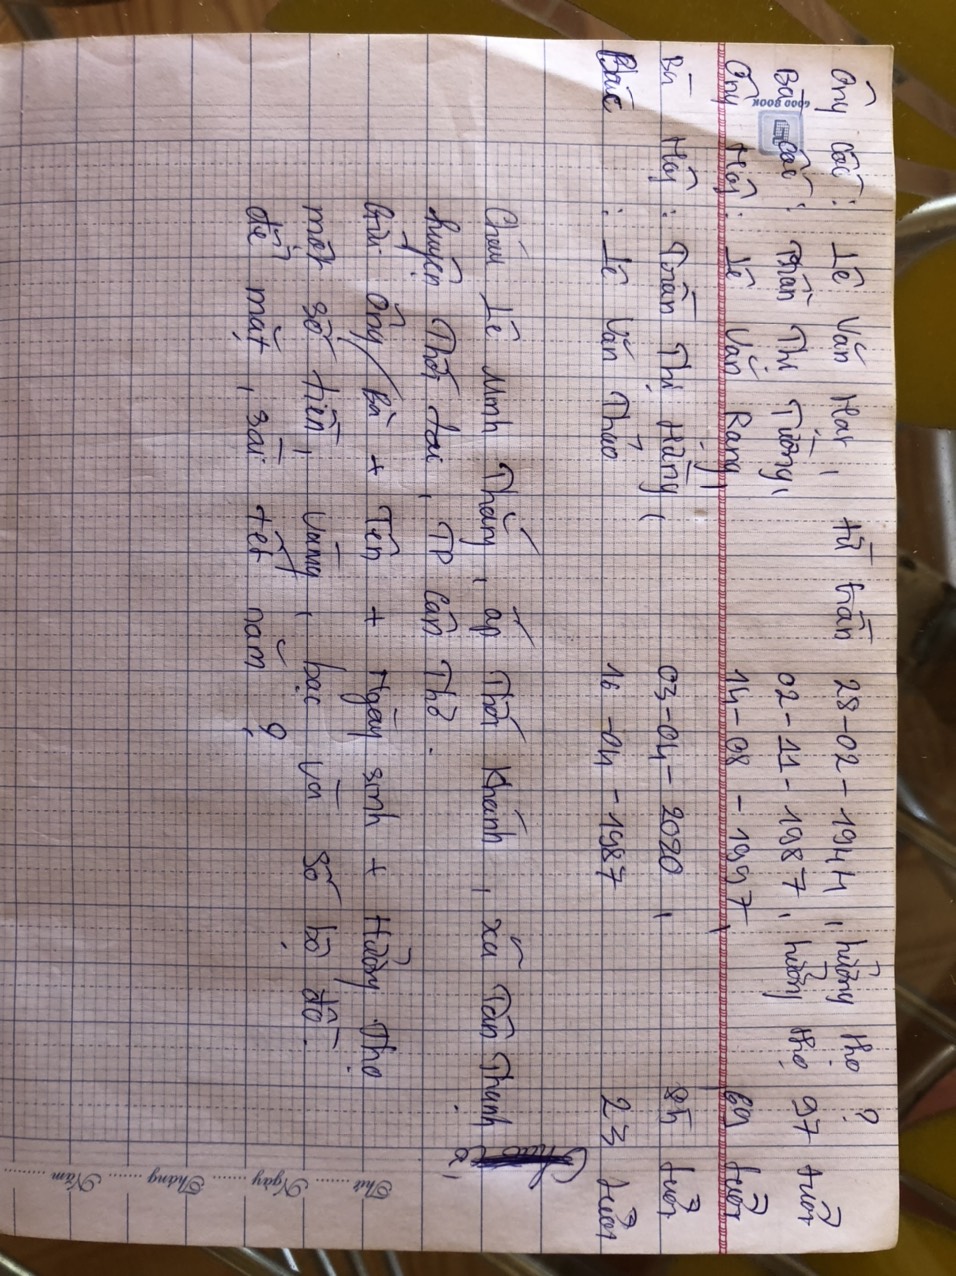 Ông Cố : Lê Văn Hát, từ trần 28-02-1944, hưởng thọ ?
Bà Cố : Trần Thị Tường, 02-11-1987, hưởng thọ 97 tuổi
Ông Nội : Lê Văn Rạng, 14-08-1997, 69 tuổi
Bà Nội : Trần Thị Hằng, 03-04-2020, 85 tuổi
Bác : Lê Văn Thảo 16-04-1987 23 tuổi
Cháu Lê Minh Thắng, ấp Thới Khánh, xã Tân Thạnh
huyện Thới Lai, TP Cần Thơ.
Gửi Ông/Bà + Tên + Ngày sinh + Hưởng Thọ
một số tiền, vàng, bạc và số bộ đồ.
để mặt, sài tết năm
GOOD BOOK
Thứ ........ Ngày ........ Tháng ........ Năm ........